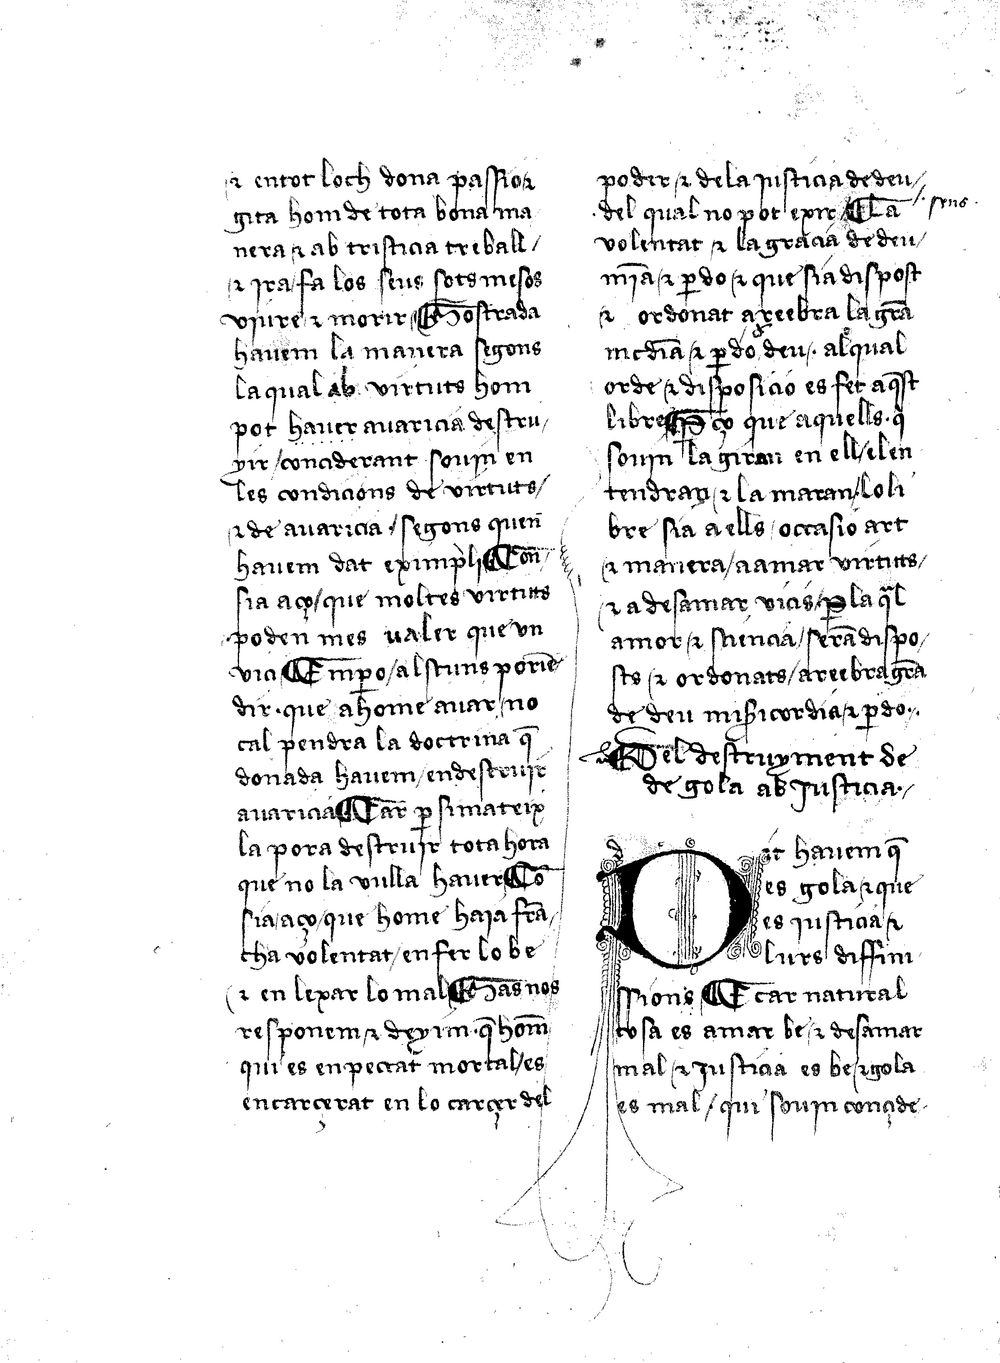 ⁊ en tot loch dona passio ⁊
gita hom de tota bona ma
nera ⁊ ab tristicia treball /
⁊ ira / fa los seus sotsmesos
viure ⁊ morir Mostrada
hauem la manera segons
la qual ab virtuts hom
pot hauer auaricia destru /
yir / conciderant souin en
les condicions de virtuts /
⁊ de auaricia / segons quen
hauem dat eximpli Con
sia aço / que moltes virtuts
poden mes ualer que vn
vici Empo / alscuns porie
dir · que a home auar / no
cal pendra la doctrina q̄
donada hauem / en destruir
auaricia Car p̱ si mateix
la pora destruir tota hora
que no la vulla hauer Cō
sia aço / que home haia frā /
cha volentat / en fer lo be
⁊ en lexar lo mal Mas nos
responem ⁊ deyim · q̄ hom
qui es en peccat mortal / es
encarcerat en lo carçer del
poder ⁊ de la iusticia de deu /
del qual no pot exir / sens · Ca
volentat ⁊ la gracia de deu /
mīa ⁊ p̱do ⁊ que sia dispost
⁊ ordonat a reebra la grā
mcdia ⁊ p̱do de deu / · al qual
orde ⁊ disposicio es fet aq̄st
libre P̱ ço que aquells · q̄
souin la giran en ell / elen
tendran ⁊ la maran / lo li
bre sia a ells / occasio art
⁊ manera / a amar virtuts /
⁊ a desamar vicis / p̱ la ql̄
amor ⁊ sciencia / serā dispo /
sts ⁊ ordonats / a reebra grā
de deu misicordia ⁊ p̱do · /
Del destruyment de
de gola ab iusticia · /
Dit hauem q̄
es gola ⁊ que
es iusticia ⁊
lurs diffini
ssions E car natural
cosa es amar be ⁊ desamar
mal ⁊ iusticia es be ⁊ gola
es mal / qui souin concide ·